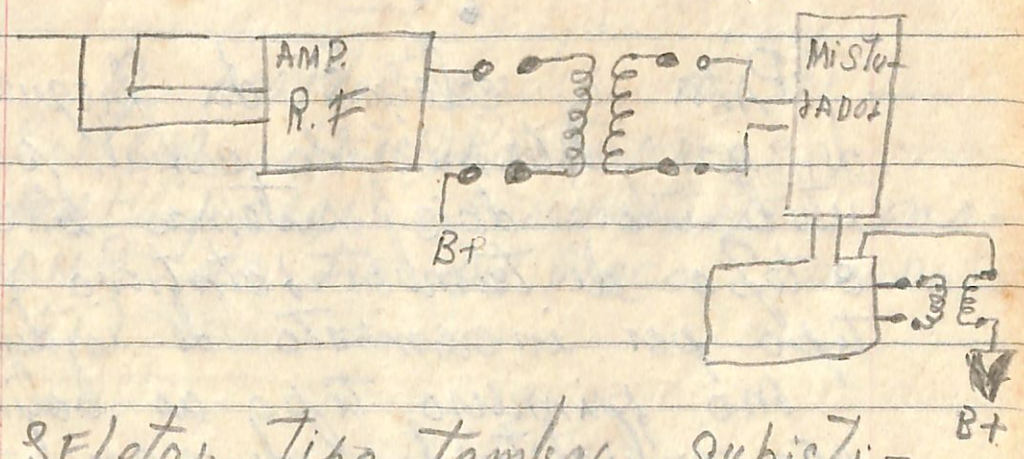 AMP.
R.F
MiStu-
RADOR
B+
B+
SEletor Tipo Tambor substi-